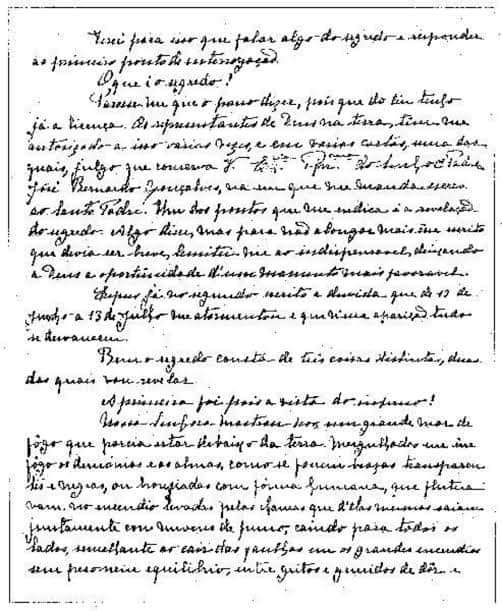 Terei para isso que falar algo do segredo e responder
ao primeiro ponto de interrogação.
O que é o segredo?
Parece-me que o posso dizer, pois que do Céu tenho
já a licença. Os representantes de Deus na terra, têm-me
autorizado a isso várias vezes, e em várias cartas, uma das
quais, julgo que conserva V. Ex.cia Rev.ma do Senhor Padre
José Bernardo Gonçalves, na em que me manda escrever
ao Santo Padre. Um dos pontos que me indica é a revelação
do segredo. Algo disse, mas para não alongar mais esse escrito
que devia ser breve, limitei-me ao indispensável, deixando
a Deus a oportunidade d'um momento mais favorável.
Expus já no segundo escrito a duvida que de 13 de
Junho a 13 de Julho me atormentou e que n'essa aparição tudo
se desvaneceu.
Bem o segredo consta de três coisas distintas, duas
das quais vou revelar.
A primeira foi pois a vista do inferno!
Nossa Senhora mostrou-nos um grande mar de
fôgo que parcia estar debaixo da terra. Mergulhados em êsse
fôgo os demónios e as almas, como se fossem brasas transparen
tes e negras, ou bronziadas com fórma humana, que flutua
vam no incendio levadas pelas chamas que d'elas mesmas saiam
juntamente com nuvens de fumo, caindo para todos os
lados, semelhante ao cair das faulhas em os grandes incendios
sem peso nem equilibrio, entre gritos e gemidos de dôr e